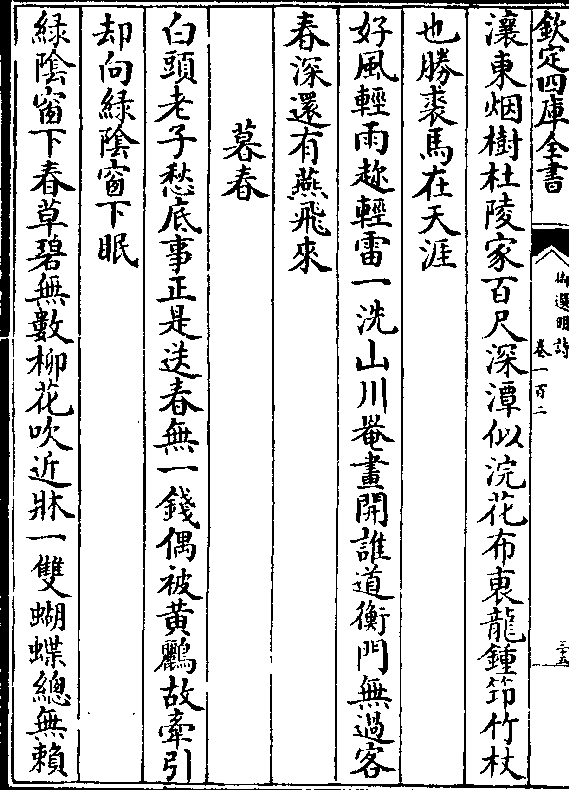 欽定四庫全書
御選明詩
卷一百二
三十五
瀼東烟樹杜陵家百尺深潭似浣花布衷龍鍾笻竹杖
也勝裘馬在天涯
好風輕雨趂輕雷一洗山川罨畫開誰道衡門無過客
春深還有燕飛來
暮春
白頭老子愁底事正是送春無一錢偶被黄鸝故牽引
却向綠陰窗下眠
綠陰窗下春草碧無數柳花吹近牀一雙蝴蝶總無賴